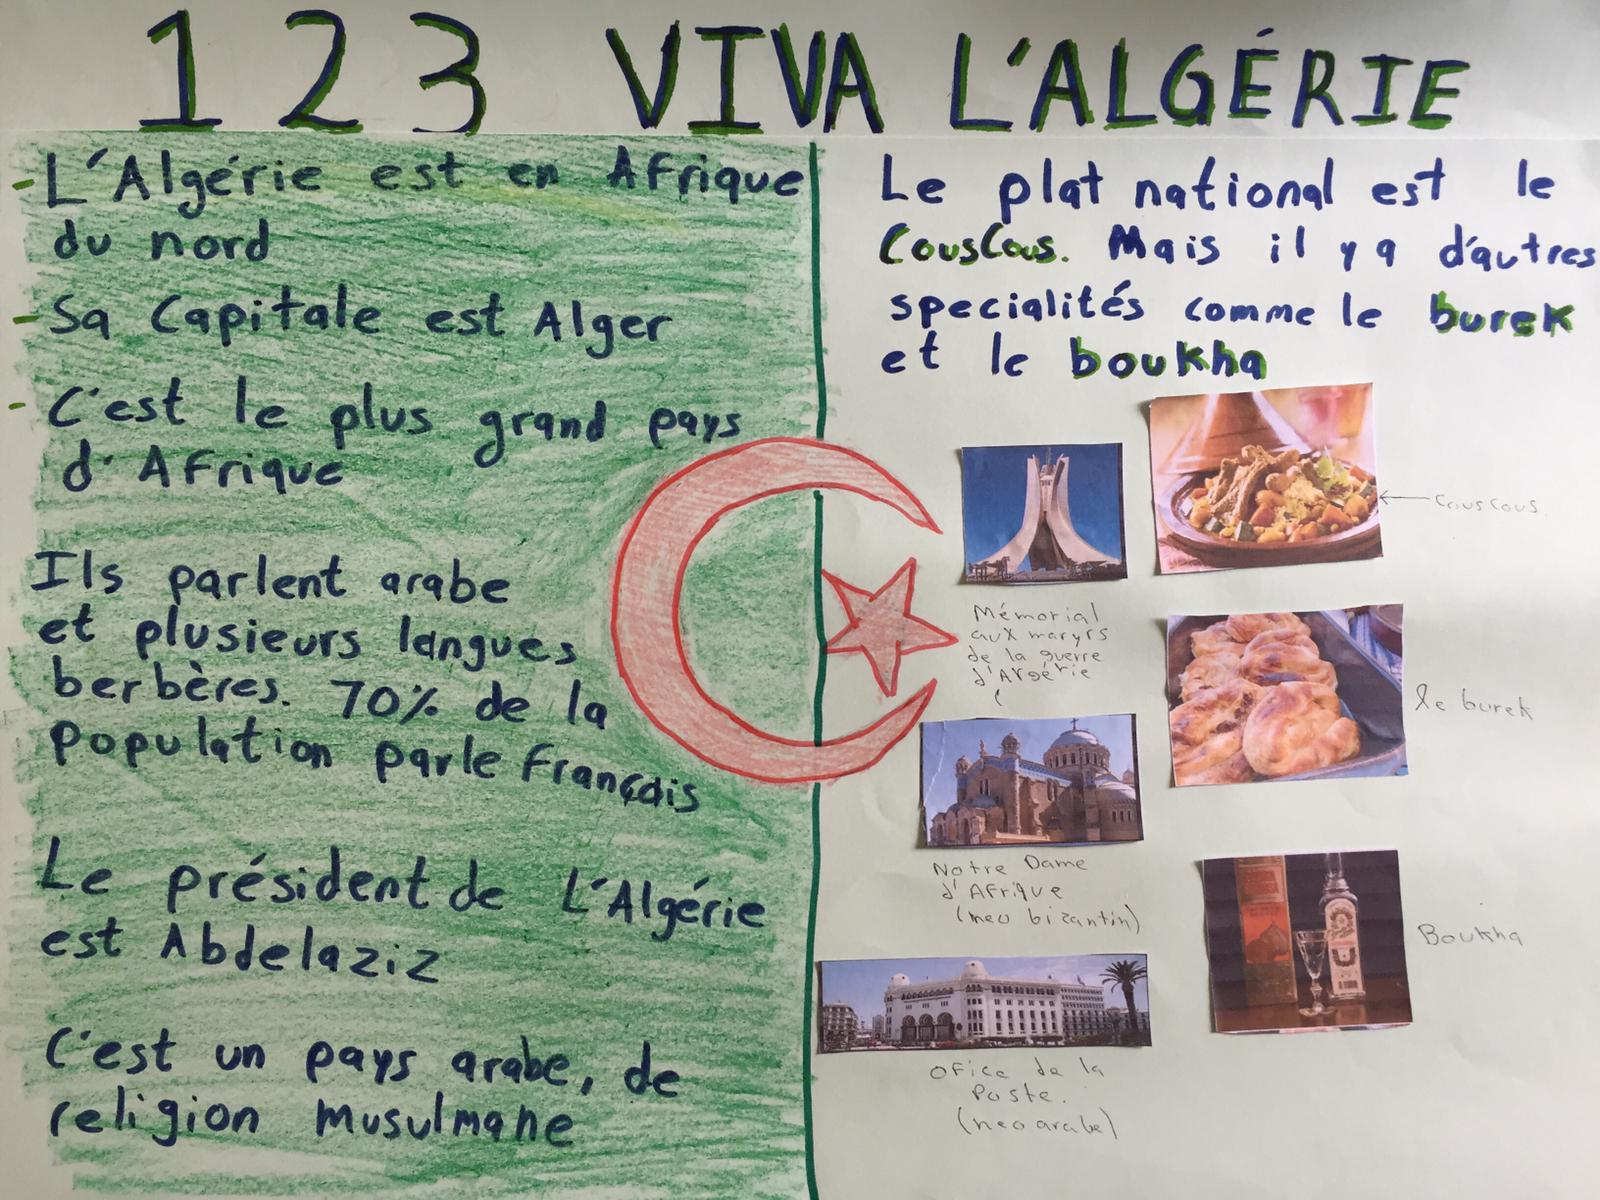 1 2 3 VIVA L'ALGÉRIE
- L'Algérie est en Afrique
du nord
- Sa Capitale est Alger
- C'est le plus grand pays
d'Afrique
Ils parlent arabe
et plusieurs langues
berbères. 70% de la
population parle Français
Le président de L'Algérie
est Abdelaziz
C'est un pays arabe, de
religion musulmane
Le plat national est le
CousCous. Mais il y a d'autres
specialités comme le burek
et le boukha
couscous
Mémorial
aux maryrs
de la guerre
d'Argérie
le burek
Notre Dame
d'Afrique
(neo bizantin)
Boukha
Ofice de la
Poste.
(neo arabe)